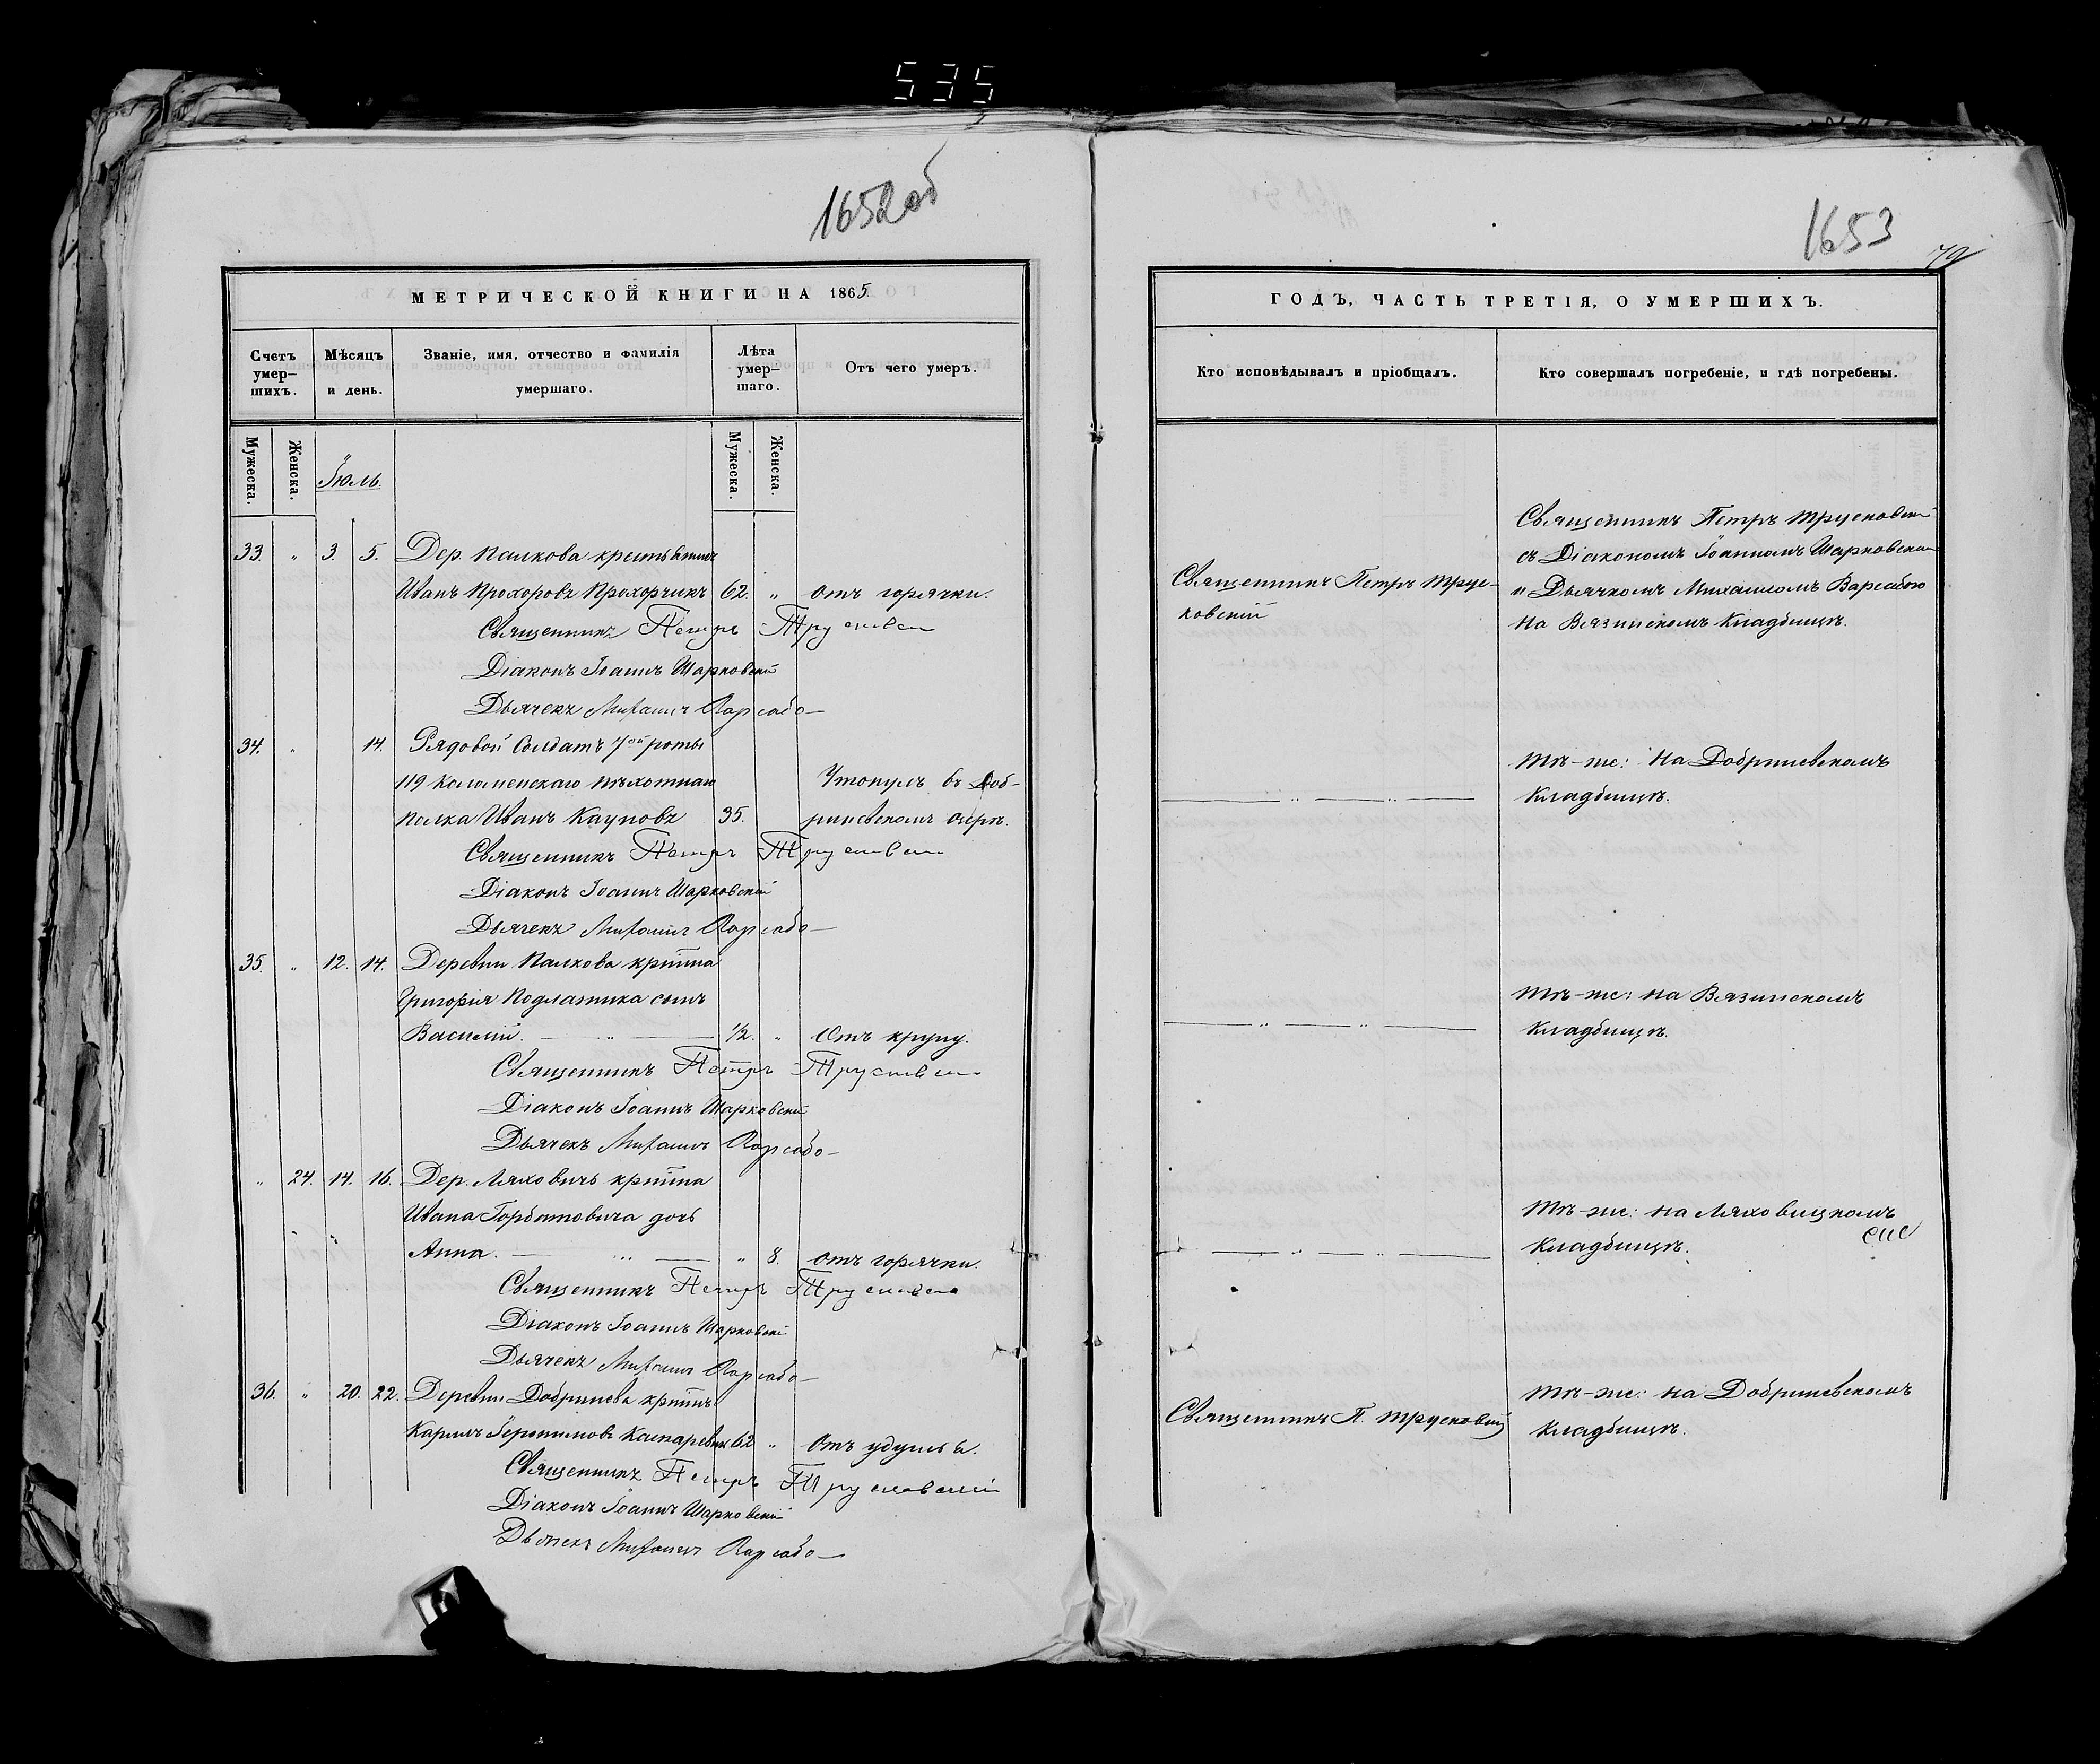 535
1652 об
МЕТРИЧЕСКОЙ КНИГИ НА 1865.
Счетъ умер-шихъ.
Мѣсяцъ и день.
Званіе, имя, отчество и фамилія умершаго.
Лѣта умер-шаго.
Отъ чего умеръ.
Мужеска.
Женска.
Іюль.
Мужеска.
Женска.
33. " 3. 5. Дер. Палкова крестьянинъ
Иванъ Прохоровъ Прохорчикъ 62. " Отъ горячки.
Священникъ Петръ Трусковскій
Діаконъ Іоаннъ Шарковскій
Дьячекъ Михаилъ Варсабо
34. " 14. Рядовой Солдатъ 7ой роты
119 Коломенскаго пѣхотнаго Утонулъ въ Доб-
полка Иванъ Кауповъ 35. риневскомъ озерѣ.
Священникъ Петръ Трусковскій
Діаконъ Іоаннъ Шарковскій
Дьячекъ Михаилъ Варсабо
35. " 12. 14. Деревни Палкова кртна
Григорія Подлатника сынъ
Василій. 1/2. " Отъ крупу.
Священникъ Петръ Трусковскій
Діаконъ Іоаннъ Шарковскій
Дьячекъ Михаилъ Варсабо
" 24. 14. 16. Дер. Ляховичъ кртна
Ивана Горбатовича дочь
Анна. " 8. Отъ горячки.
Священникъ Петръ Трусковскій
Діаконъ Іоаннъ Шарковскій
Дьячекъ Михаилъ Варсабо
36. " 20. 22. Деревни Добринева кртнъ
Карпъ Іеронимовъ Каспаревичъ 62 " Отъ удушья.
Священникъ Петръ Трусковскій
Діаконъ Іоаннъ Шарковскій
Дьячекъ Михаилъ Варсабо
1653
ГОДЪ, ЧАСТЬ ТРЕТІЯ, О УМЕРШИХЪ.
Кто исповѣдывалъ и пріобщалъ.
Кто совершалъ погребеніе, и гдѣ погребены.
Священникъ Петръ Трус-
ковскій
Священникъ Петръ Трусковскій
съ Діакономъ Іоанномъ Шарковскимъ
и Дьячкомъ Михаиломъ Варсабою
на Вязинскомъ Кладбищѣ.
Тѣ-же: на Добриневскомъ
Кладбищѣ.
Тѣ-же: на Вязинскомъ
Кладбищѣ.
Тѣ-же: на Ляховицкомъ
Кладбищѣ.
Священникъ П. Трусковскій
Тѣ-же: на Добриневскомъ
Кладбищѣ.